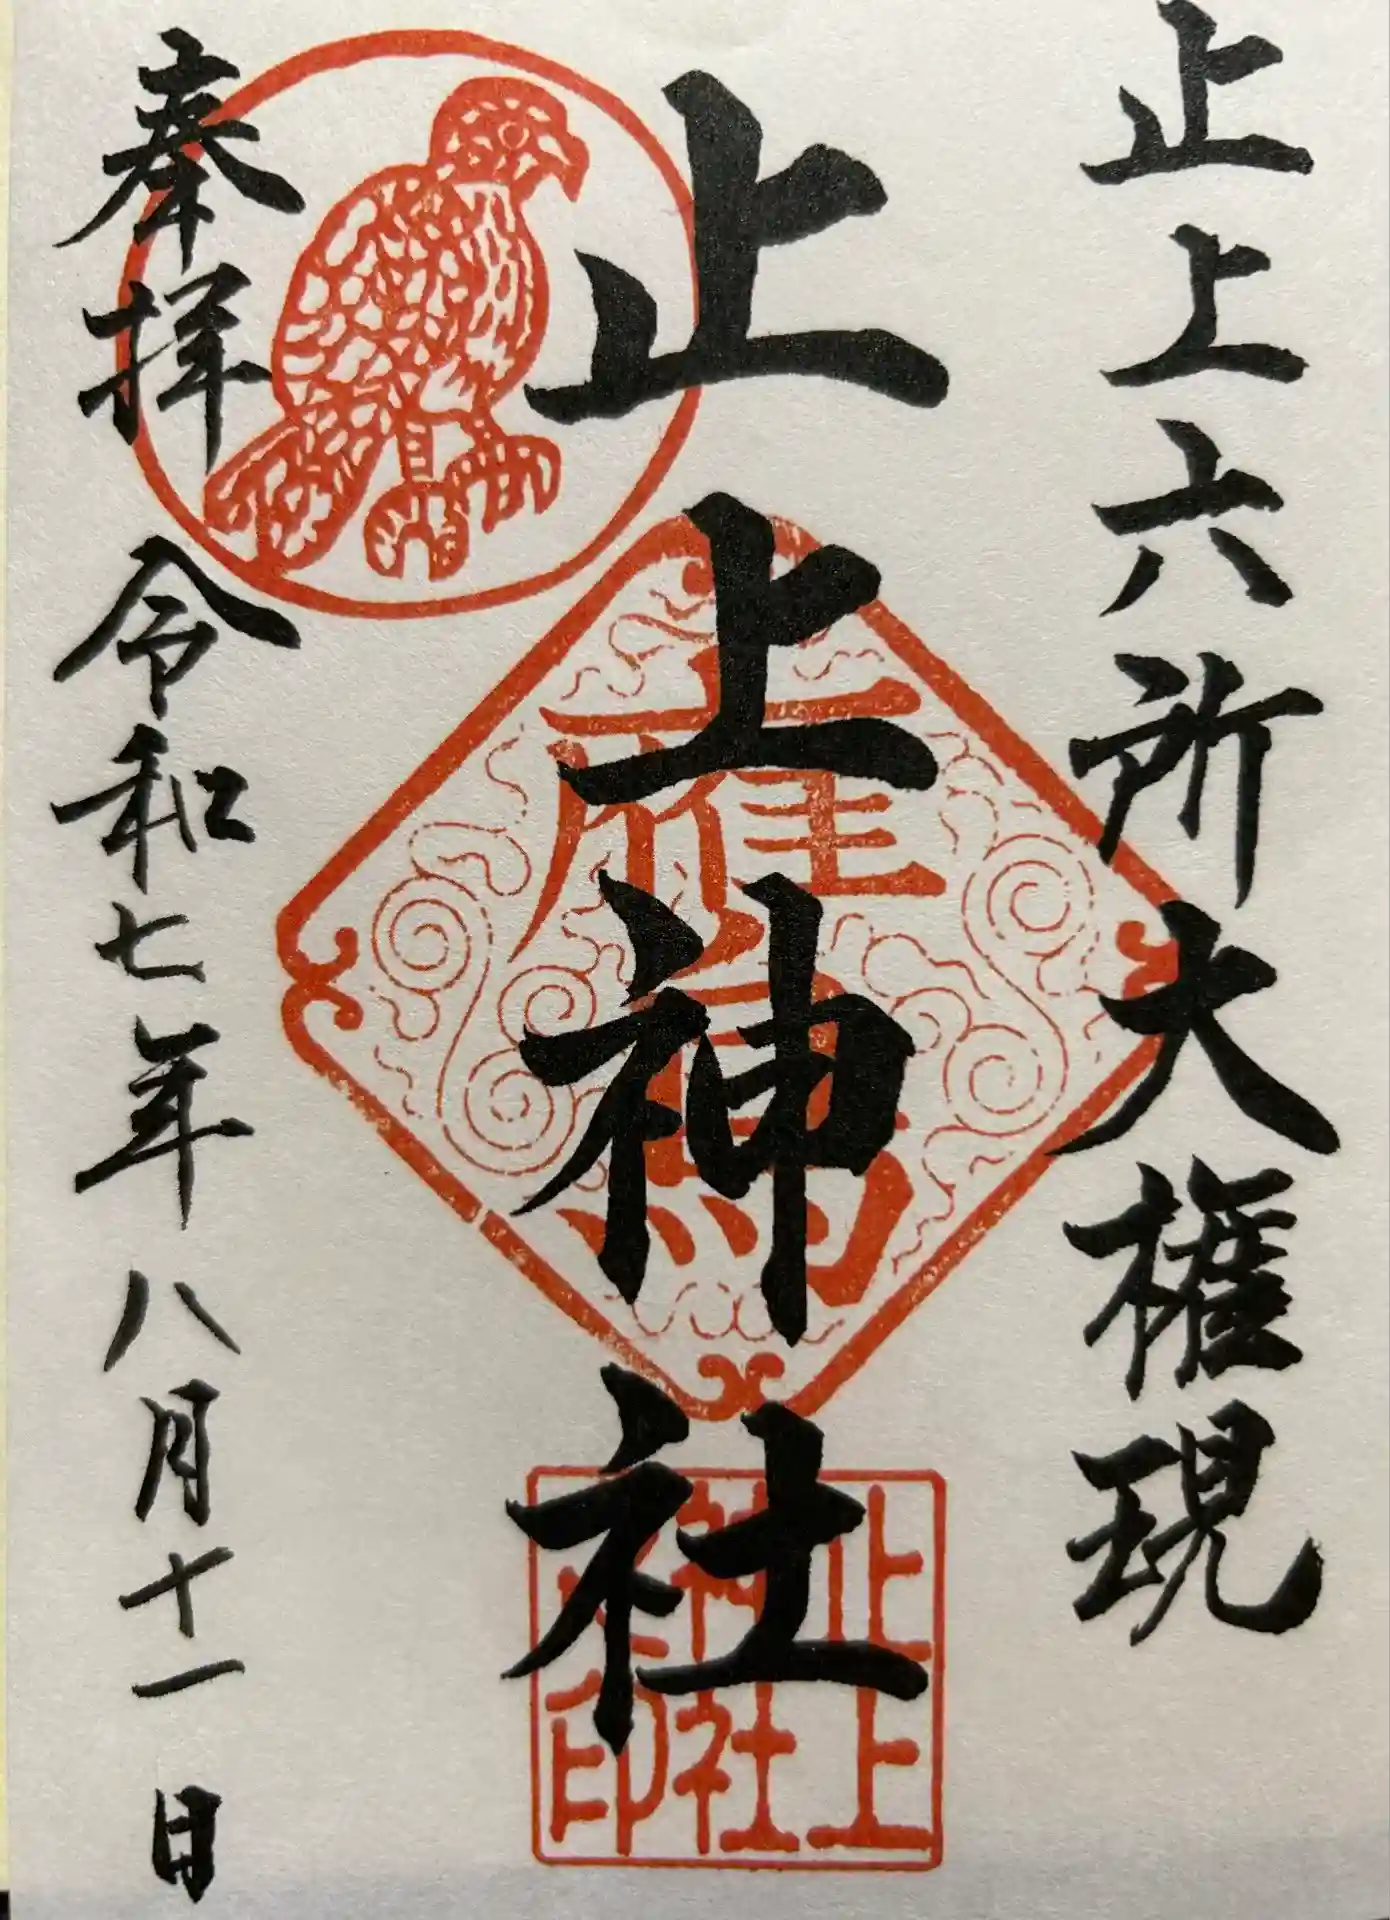 止上六所大権現
止上神社
奉拝 令和七年八月十一日
鷹
止上
神社
之印